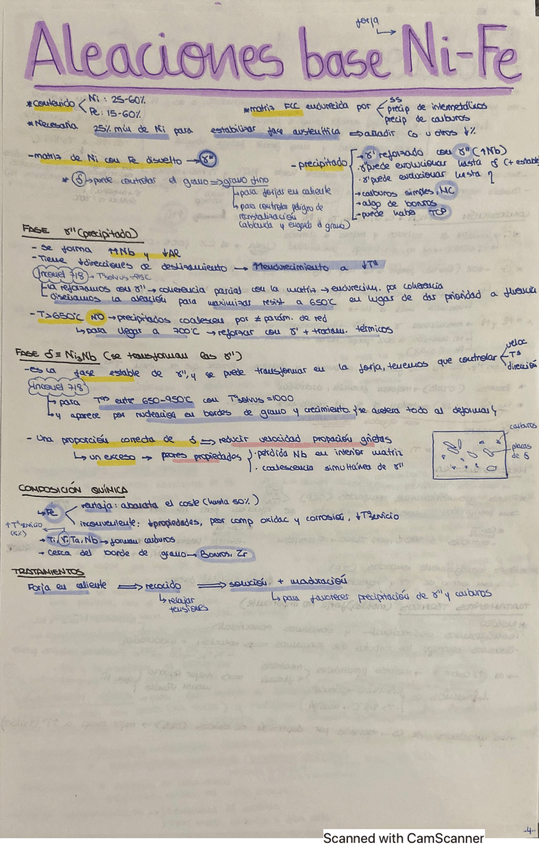 forja
Aleaciones base Ni-Fe
*contenido Ni: 25-60%
Fe: 15-60%
*matriz FCC endurecida por ss
precip de intermetálicos
precip de carburos
*Necesaria 25% mín de Ni para estabilizar fase austenítica ⇒ añadir Co u otros
-matriz de Ni con Fe disuelto → γ''
-precipitado
γ' reforzado con γ'' (↑Nb)
γ' puede evolucionar hasta
γ' puede evolucionar hasta η
carburos simples, MC
algo de boruros
puede haber TCP
*δ → permite controlar el grano → grano fino
↳ para forjas en caliente
↳ para controlar peligro de
recristalización
FASE γ'' (precipitado)
-se forma ↑↑Nb y ↓Al
-Tiene direcciones de deslizamiento → ↑endurecimiento a ↓Tª
Inconel 718
↳ la reforzamos con γ'' → coherencia parcial con la matriz → endurecim. por coherencia
diseñamos la aleación para maximizar resist a 650ºC en lugar de dar prioridad a fluencia
-T>650ºC NO → precipitados coalescen por ≠ parám. de red
↳ para llegar a 700ºC → reforzar con γ' + tratam. térmicos
FASE δ = Ni3Nb (se transforman las γ'')
-es la fase estable de γ'', y se puede transformar en la forja, tenemos que controlar veloc
Tª
dirección
Inconel 718
↳ para Tª entre 650-950ºC con Tsolvus=1000
↳ y aparece por nucleación en bordes de grano y crecimiento (se acelera todo al deformar)
-Una proporción correcta de δ ⇒ reducir velocidad propagación grietas
↳ un exceso → peores propiedades
pérdida Nb en interior matriz
coalescencia simultánea de γ''
carburos
placas
de δ
COMPOSICIÓN QUÍMICA
→ Fe
ventaja: abarata el coste (hasta 50%)
inconveniente: ↓propiedades, peor comp oxidac y corrosión, ↓Tservicio
→ Ti, V, Ta, Nb → forman carburos
→ Cerca del borde de grano → Boruros, Zr
TRATAMIENTOS
Forja en caliente ⇒ recocido ⇒ solución + maduración
↳ relajar
tensiones
↳ para favorecer precipitación de γ'' y carburos
-4-
Scanned with CamScanner